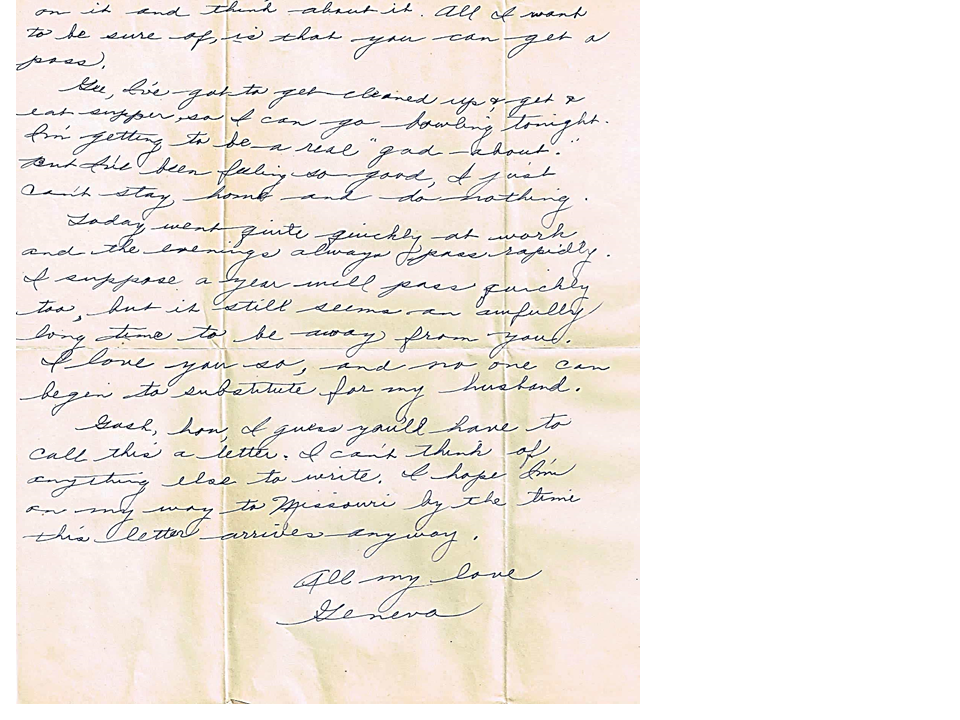 on it and think about it. All I want
to be sure of, is that you can get a
pass.
Gee, I've got to get cleaned up & get &
eat supper so I can go bowling tonight.
I'm getting to be a real "gad-about."
But I've been feeling so good, I just
can't stay home and do nothing.
Today went quite quickly at work
and the evenings always pass rapidly.
I suppose a year will pass quickly
too, but it still seems an awfully
long time to be away from you.
I love you so, and no one can
begin to substitute for my husband.
Gosh, hon, I guess you'll have to
call this a letter. I can't think of
anything else to write. I hope I'm
on my way to Missouri by the time
this letter arrives anyway.
All my love
Geneva